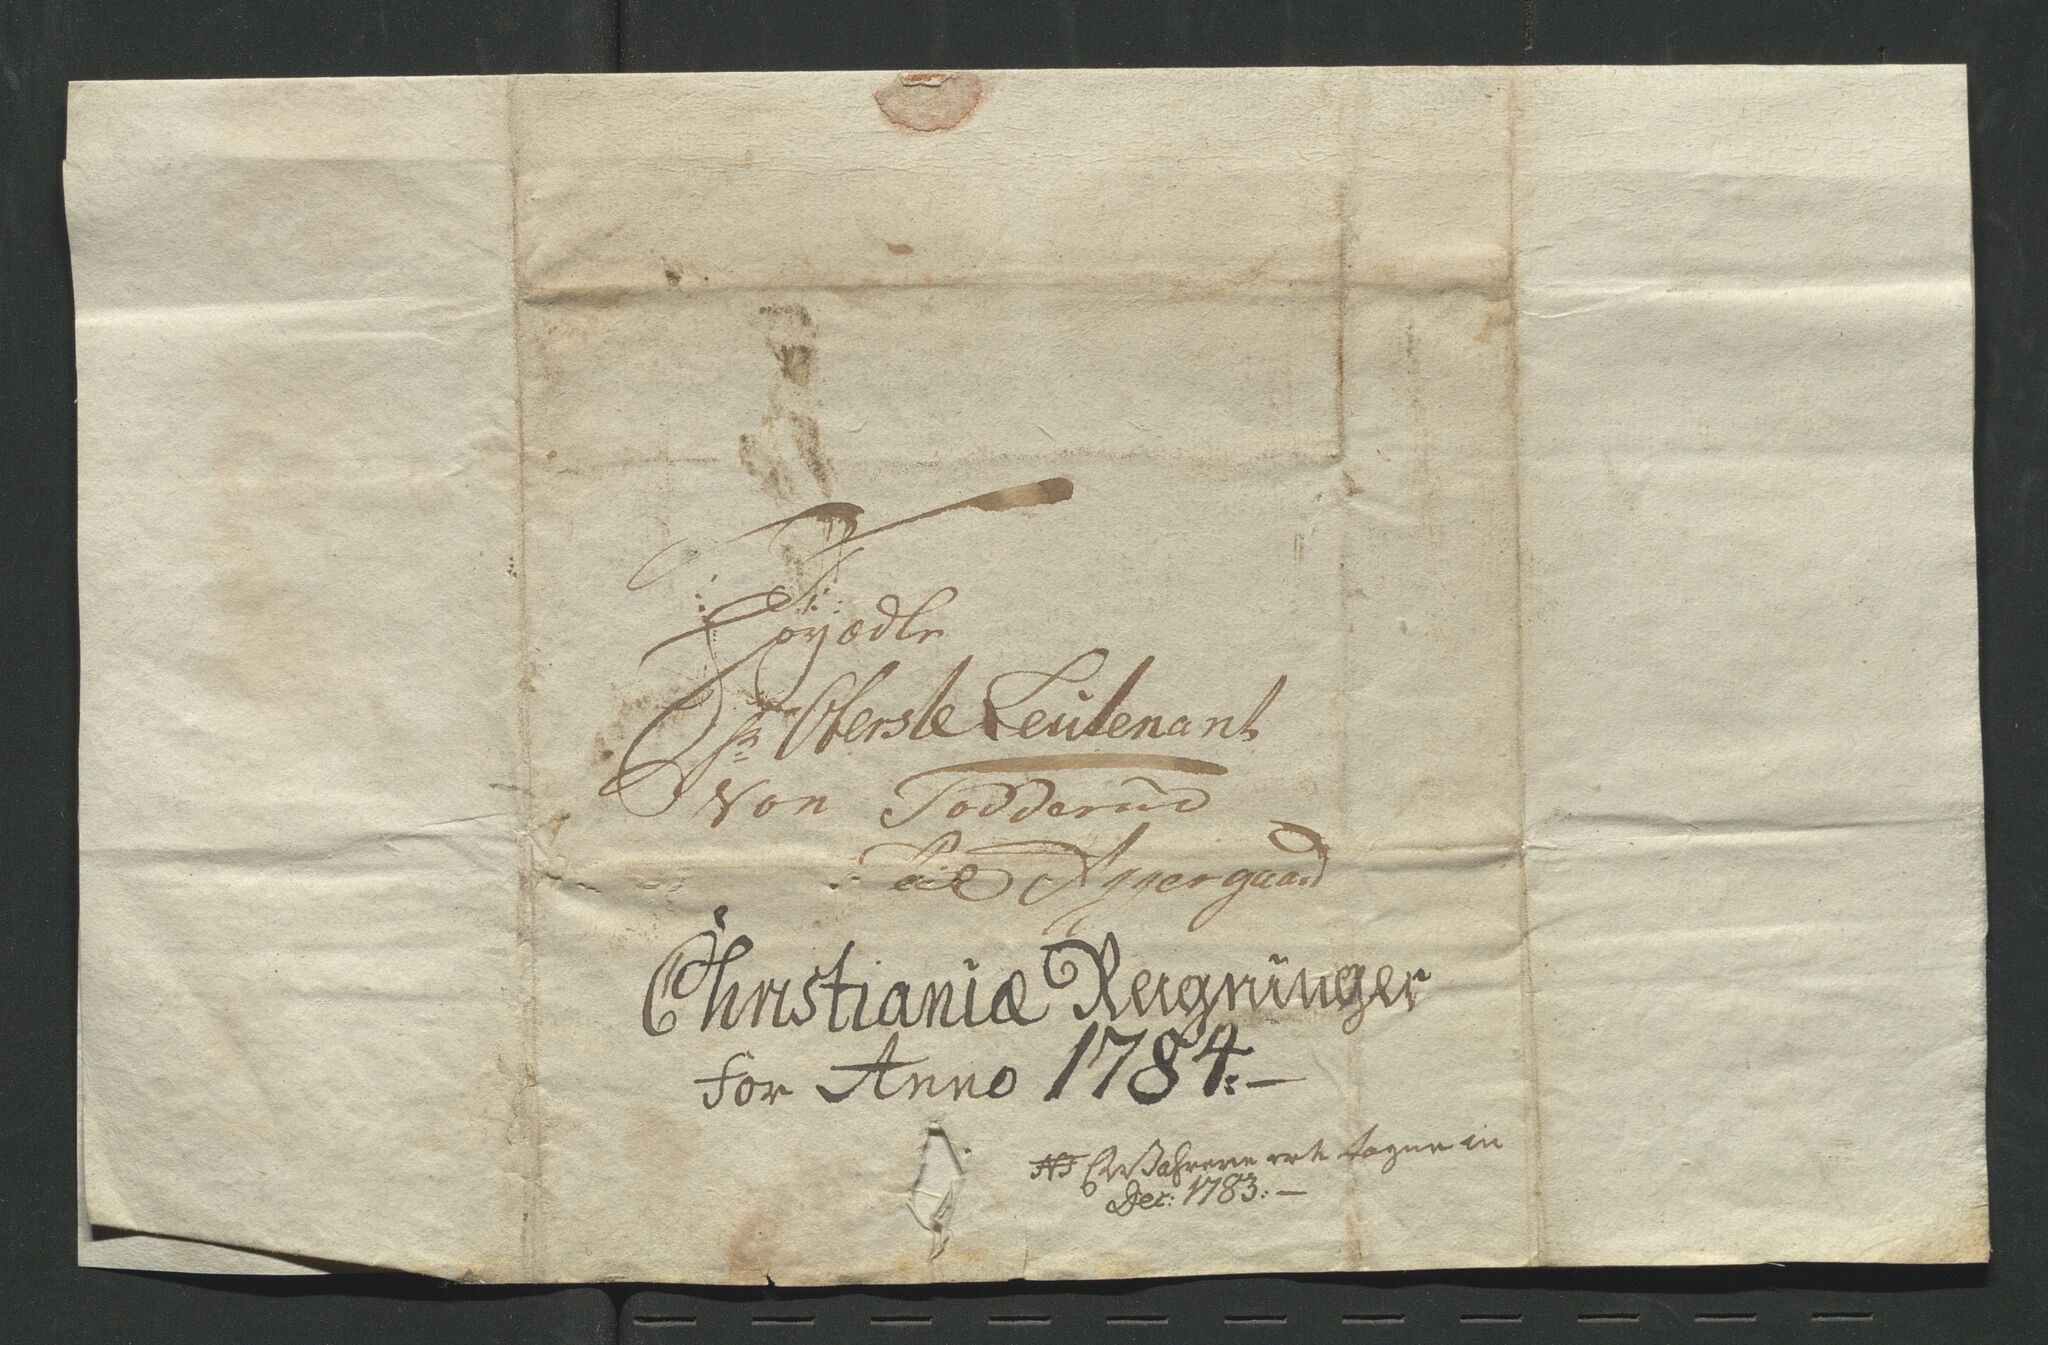 Høyædle
Hr Oberste Leutenant
Von Todderud
til Aggergaard
Christianiæ Reigninger
for Anno 1784:—
NB tagne in
Dec: 1783:—